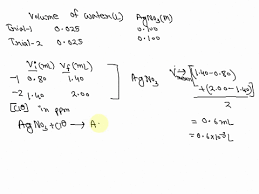 Volume of water(L) AgNO₃(M)
Trial-1 0.025 0.100
Trial-2 0.025 0.100
Vi(mL) Vf(mL)
-1 0.80 1.40
-2 1.40 2.00
AgNO₃ Vmean → (1.40-0.80)
+(2.00-1.40)
2
[Cl⊖] in ppm
= 0.6 mL
AgNO₃ + Cl⊖ → A.
= 0.6×10⁻³L